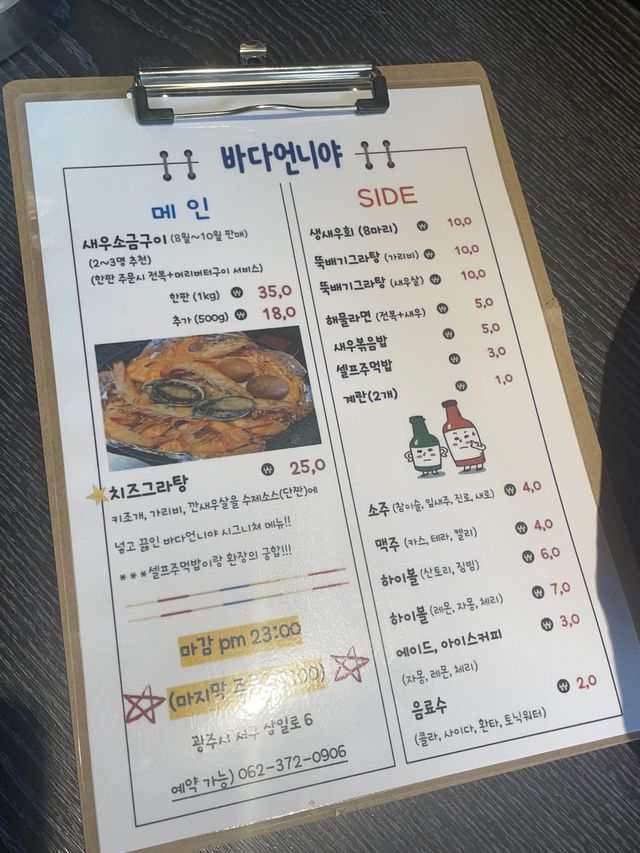 바다언니야
메 인
새우소금구이 (8월~10월 판매)
(2~3명 추천)
(한판 주문시 전복+머리버터구이 서비스)
한판 (1kg) ₩ 35,0
추가 (500g) ₩ 18,0
치즈그라탕 ₩ 25,0
키조개, 가리비, 깐새우살을 수제소스(단짠)에
넣고 끓인 바다언니야 시그니쳐 메뉴!!
***셀프주먹밥이랑 환장의 궁합!!!
마감 pm 23:00
(마지막
광주시 서구 상일로 6
예약 가능) 062-372-0906
SIDE
생새우회 (8마리) ₩ 10,0
뚝배기그라탕 (가리비) ₩ 10,0
뚝배기그라탕 (새우살) ₩ 10,0
해물라면 (전복+새우) ₩ 5,0
새우볶음밥 ₩ 5,0
셀프주먹밥 ₩ 3,0
계란(2개) ₩ 1,0
소주 (참이슬, 잎새주, 진로, 새로) ₩ 4,0
맥주 (카스, 테라, 켈리) ₩ 4,0
하이볼 (산토리, 짐빔) ₩ 6,0
하이볼 (레몬, 자몽, 체리) ₩ 7,0
에이드, 아이스커피 ₩ 3,0
(자몽, 레몬, 체리)
음료수 ₩ 2,0
(콜라, 사이다, 환타, 토닉워터)